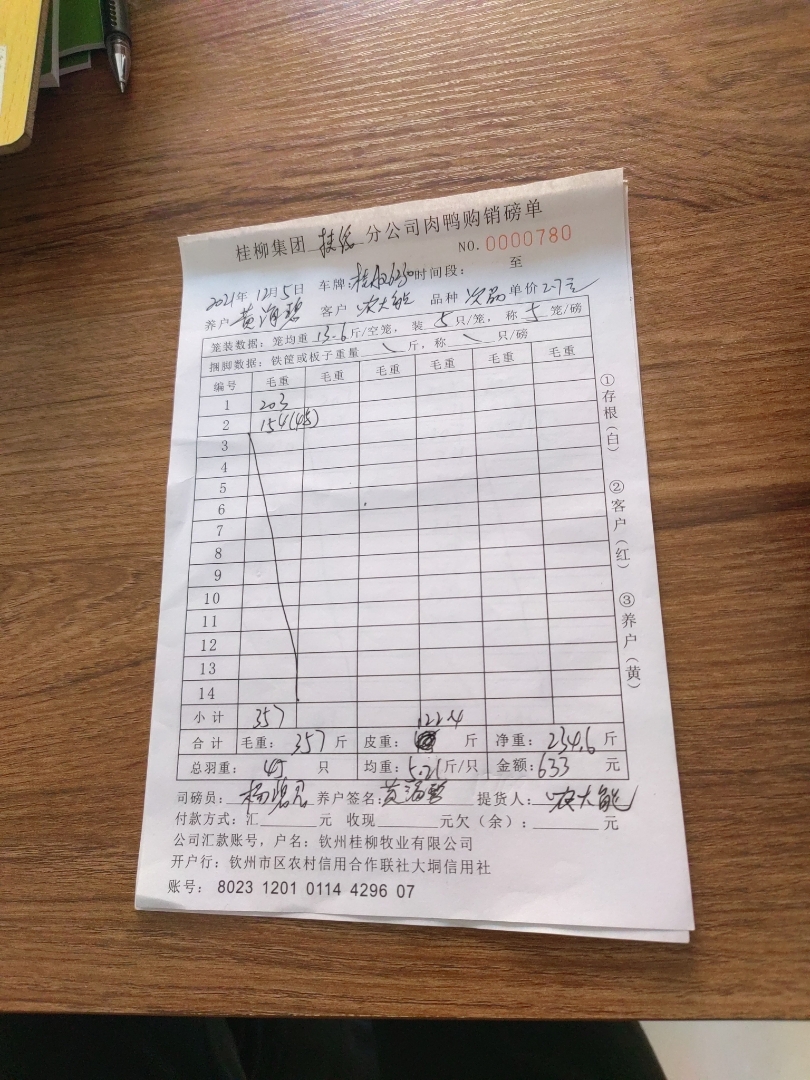 桂柳集团 扶绥 分公司肉鸭购销磅单
NO. 0000780
2021年 12月 5日 车牌: 时间段: 至
养户 黄海碧 客户 农大能 品种 次品 单价 2.7元
笼装数据: 笼均重 13.6 斤/空笼, 装 5 只/笼, 称 5 笼/磅
捆脚数据: 铁筐或板子重量 \ 斤, 称 \ 只/磅
编号 毛重 毛重 毛重 毛重 毛重 毛重
1 203
2 154(45)
3
4
5
6
7
8
9
10
11
12
13
14
小计 357
合计 毛重: 357 斤 皮重: 122.4 斤 净重: 234.6 斤
总羽重: 45 只 均重: 5.21 斤/只 金额: 633 元
司磅员: 养户签名: 黄海碧 提货人: 农大能
付款方式: 汇 元 收现 元欠(余): 元
公司汇款账号, 户名: 钦州桂柳牧业有限公司
开户行: 钦州市区农村信用合作联社大垌信用社
账号: 8023 1201 0114 4296 07
①存根(白)
②客户(红)
③养户(黄)